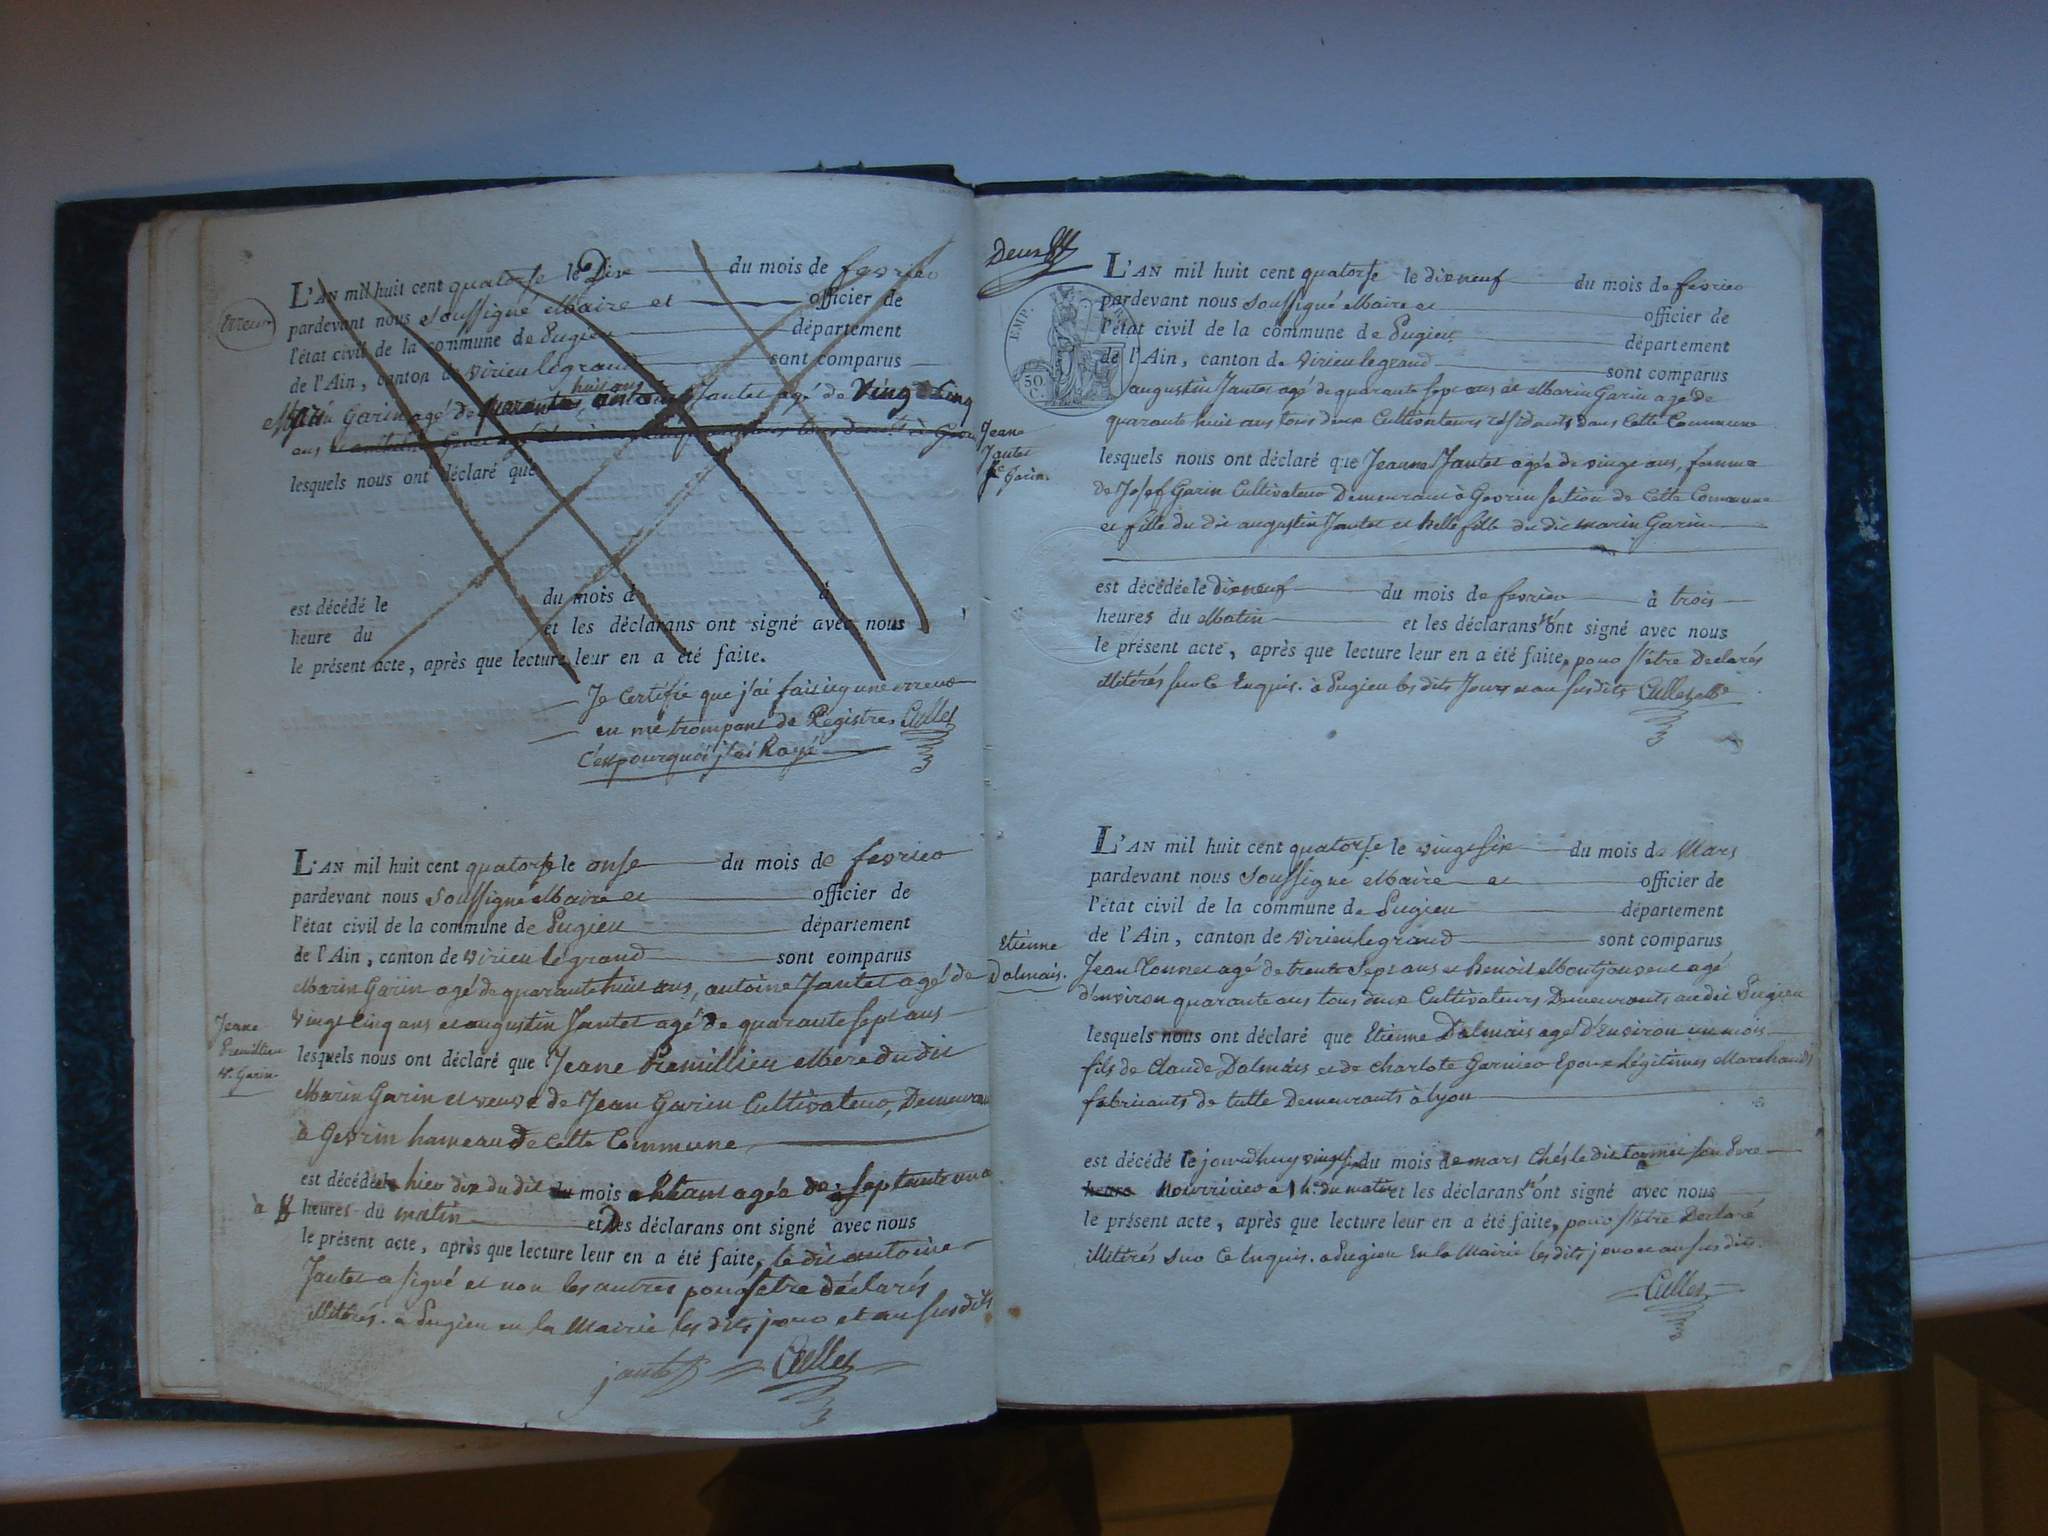 erreur
L'AN mil huit cent quatorse le Dix du mois de fevrier
pardevant nous soussigné Maire et officier de
l'état civil de la commune de Pugieu département
de l'Ain, canton de virieu le grand sont comparus
huit ans
Marin Garin agé de quarante antoine Jantet agé de Vingt Cinq
ans
lesquels nous ont déclaré que
est décédé le du mois d à
heure du et les déclarans ont signé avec nous
le présent acte, après que lecture leur en a été faite.
Je Certifie que j'ai fais icy une erreur
en me trompant de Registre. Cullet
C'est pourquoi j'ai Rayé
L'AN mil huit cent quatorse le onse du mois de fevrier
pardevant nous soussigné Maire et officier de
l'état civil de la commune de Pugieu département
de l'Ain, canton de virieu le grand sont comparus
Marin Garin agé de quarante huit ans, antoine Jantet agé de
vingt cinq ans et augustin Jantet agé de quarante sept ans
Jeane
Premillieu
Ve. Garin
lesquels nous ont déclaré que Jeane Premillieu Mere du dit
Marin Garin et veuve de Jean Garin Cultivateur, Demeurant
à Gevrin hameau de cette Commune
est décédée hier dix du dit mois Etant agée de septante un
à heures du matin et les déclarans ont signé avec nous
le présent acte, après que lecture leur en a été faite, le dit antoine
Jantet a signé et non les autres pour s'etre déclarés
illitérés. a Pugieu en la Mairie les dits jour et an susdits
jantet Cullet
Deux
TEMP.
50
C.
L'AN mil huit cent quatorse le dix neuf du mois de fevrier
pardevant nous soussigné Maire et officier de
l'état civil de la commune de Pugieu département
de l'Ain, canton de virieu le grand sont comparus
augustin Jantet agé de quarante sept ans et Marin Garin agé de
quarante huit ans tous deux Cultivateurs résidents dans cette Commune
Jeane
Jantet
fe Garin.
lesquels nous ont déclaré que Jeanne Jantet agée de vingt ans, femme
de Josef Garin Cultivateur Demeurant à Gevrin section de cette Commune
et fille du dit augustin Jantet et belle fille du dit marin Garin
est décédée le dix neuf du mois de fevrier à trois
heures du Matin et les déclarans n'ont signé avec nous
le présent acte, après que lecture leur en a été faite, pour s'être Declarés
illitérés sur ce Enquis. à Pugieu les dits Jours et an susdits Cullet
L'AN mil huit cent quatorse le vingt six du mois de Mars
pardevant nous soussigné Maire et officier de
l'état civil de la commune de Pugieu département
de l'Ain, canton de virieu le grand sont comparus
Etienne
Dalmais.
Jean Tonnet agé de trente sept ans et Benoit Montjouvent agé
d'environ quarante ans tous deux Cultivateurs Demeurants audit Pugieu
lesquels nous ont déclaré que Etienne Dalmais agé d'Environ un mois
fils de Claude Dalmais et de Charlote Garnier Epoux légitimes Marchands
fabricants de tulle Demeurants à lyon
est décédé le jourdhuy vingt six du mois de mars chés le dit tonnet son Pere
heure Nourricier a 1 he. du matin et les déclarans n'ont signé avec nous
le présent acte, après que lecture leur en a été faite, pour s'être Declaré
illitérés sur ce Enquis. a Pugieu En la Mairie les dits jour et an susdits.
Cullet